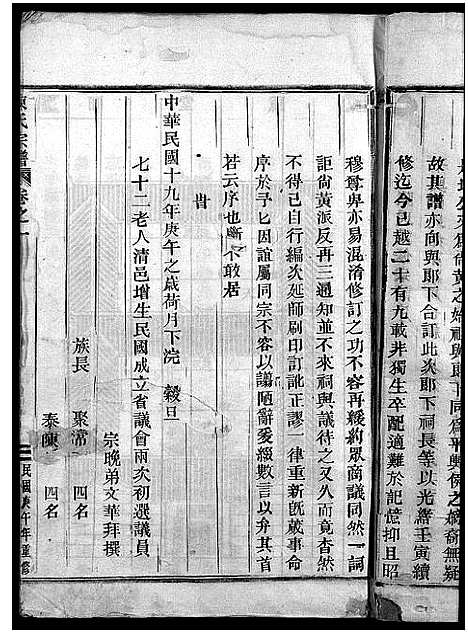 故其譜亦向與耶下合訂此次耶下祠長等以光緒壬寅續
修迄今已越二十有九載非獨生卒配適難於記憶抑且昭
穆尊卑亦易混淆修訂之功不容再緩約眾商議同然一詞
詎尚黃派反再三通知並不來祠與議待之又久而竟杳然
不得己自行編次延師刷印訂訛正謬一律重新既蕆事命
序於予匕因誼屬同宗不容以譾陋辭爰綴數言以弁其首
若云序也斷不敢居
旹
中華民國十九年庚午之歲荷月下浣　穀旦
七十二老人清邑增生民國成立省議會兩次初選議員
宗晚弟文華拜撰
族長　聚常　四名
泰陳　四名
氏宗譜　卷之一
民國庚午年重修